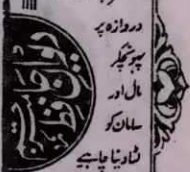 دروازہ پر
پہونچکر
مال اور
سامان کو
لٹا دینا چاہیے
دیوان حافظ